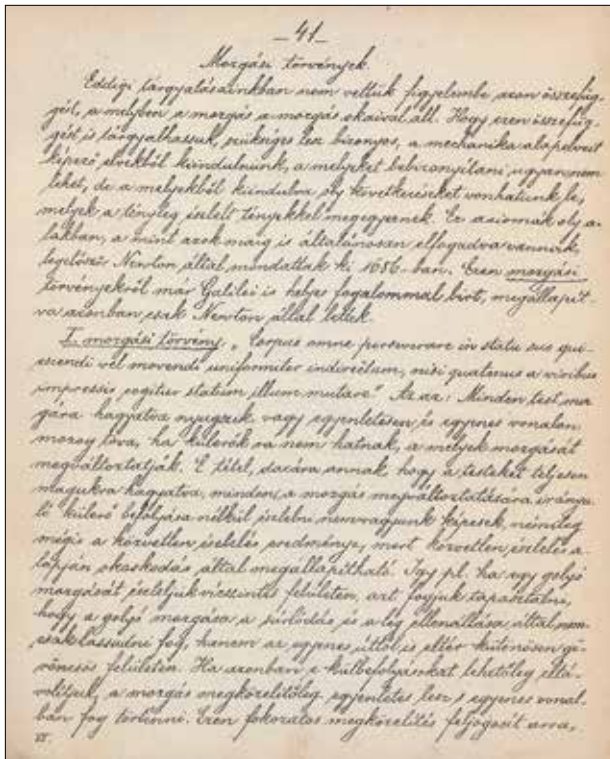 _41_
Mozgási törvények.
Eddigi tárgyalásainkban nem vettük figyelembe azon összefüg-
gést, a melyben a mozgás a mozgás okaival áll. Hogy ezen összefüg-
gést is tárgyalhassuk, szükséges lesz bizonyos, a mechanika alapelveit
képező elvekből kiindulnunk, a melyeket bebizonyítani ugyan nem
lehet, de a melyekből kiindulva oly következéseket vonhatunk le,
melyek a tényleg észlelt tényekkel megegyeznek. Ez axiomák oly a-
lakban, a mint azok maig is általánosan elfogadva vannak,
legelőször Newton által mondattak ki 1686-ban. Ezen mozgási
törvényekről már Galilei is helyes fogalommal birt, megállapít-
va azonban csak Newton által lettek.
I. mozgási törvény. „Corpus omne perseverare in statu suo qui-
escendi vel movendi uniformiter in directum, nisi quatenus a viribus
impressis cogitur statum illum mutare" Az az: Minden test ma-
gára hagyatva nyugszik vagy egyenletesen és egyenes vonalon
mozog tova, ha külerők rá nem hatnak, a melyek mozgását
megváltoztatják. E tétel, dacára annak, hogy a testeket teljesen
magukra hagyatva, minden, a mozgás megváltoztatására irányu-
ló külerő befolyása nélkül észlelni nem vagyunk képesek, némileg
mégis a közvetlen észlelés eredménye, mert közvetlen észlelés a-
lapján okoskodás által megállapítható. Igy pl. ha egy golyó
mozgását észleljük vízszintes felületen, azt fogjuk tapasztalni,
hogy a golyó mozgása a súrlódás és a lég ellenállása által nem-
csak lassudni fog, hanem az egyenes úttól is eltér különösen gö-
röncsös felületen. Ha azonban e külbefolyásokat lehetőleg eltá-
volítjuk, a mozgás megközelítőleg egyenletes lesz s egyenes vonal-
ban fog történni. Ezen fokozatos megközelítés feljogosít arra,